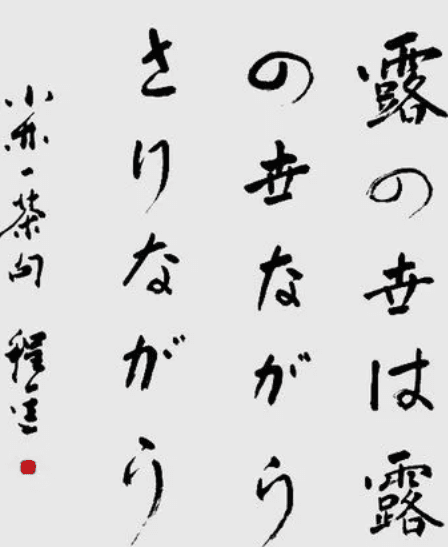 露の世は露
の世ながら
さりながら
小林一茶句